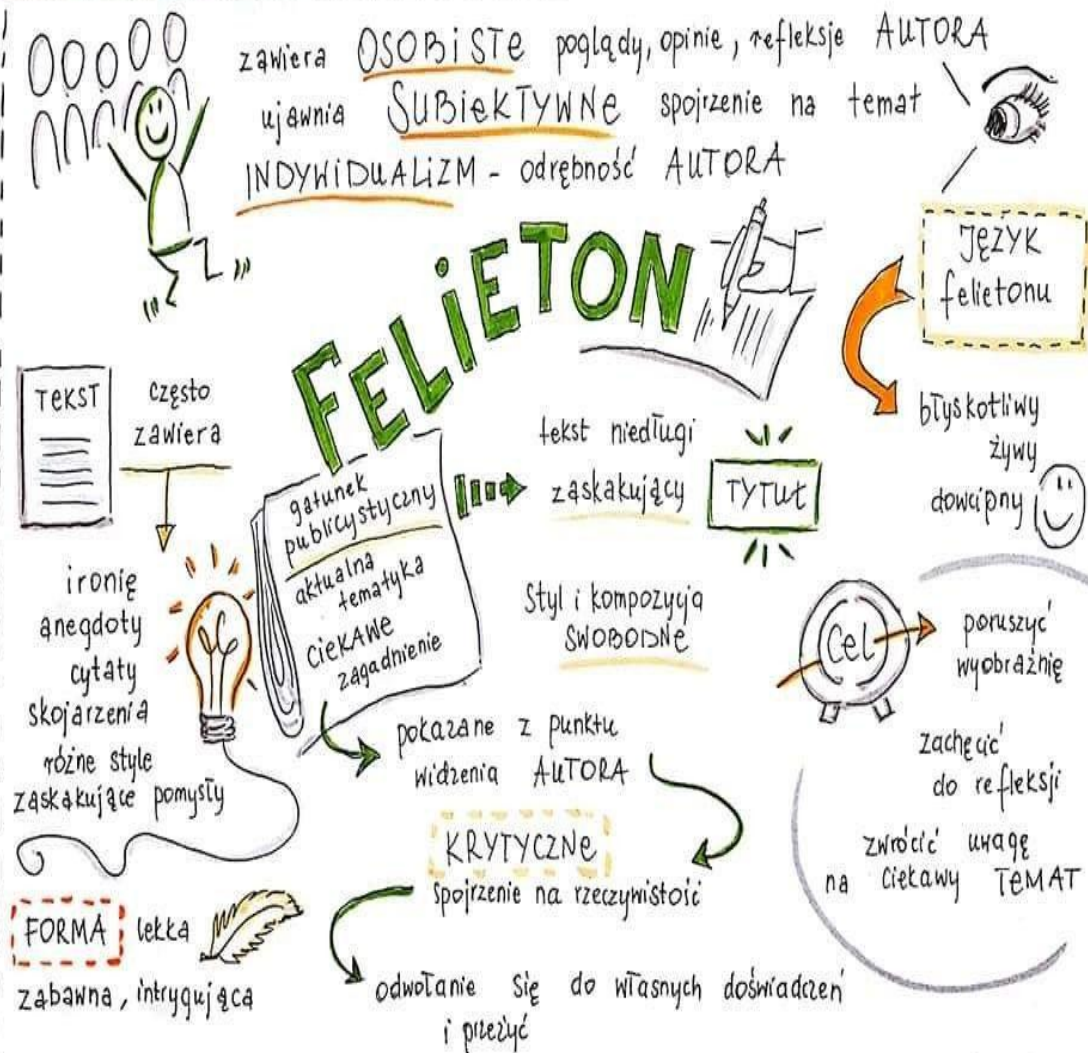 zawiera OSOBISTE poglądy, opinie, refleksje AUTORA
ujawnia SUBIEKTYWNE spojrzenie na temat
INDYWIDUALIZM - odrębność AUTORA
FELIETON
JĘZYK
felietonu
błyskotliwy
żywy
dowcipny
TEKST
często
zawiera
ironię
anegdoty
cytaty
skojarzenia
różne style
zaskakujące pomysły
gatunek
publicystyczny
aktualna
tematyka
CIEKAWE
zagadnienie
tekst niedługi
zaskakujący TYTUŁ
Styl i kompozycja
SWOBODNE
pokazane z punktu
widzenia AUTORA
KRYTYCZNE
spojrzenie na rzeczywistość
odwołanie się do własnych doświadczeń
i przeżyć
Cel
poruszyć
wyobraźnię
zachęcić
do refleksji
zwrócić uwagę
na ciekawy TEMAT
FORMA lekka
zabawna, intrygująca